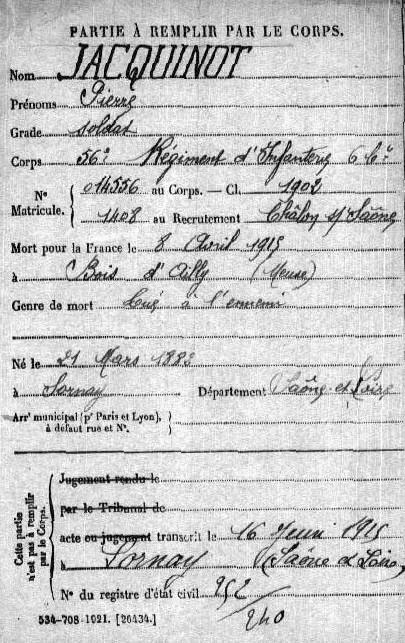 PARTIE À REMPLIR PAR LE CORPS.
Nom JACQUINOT
Prénoms Pierre
Grade soldat
Corps 56e Régiment d'Infanterie 6 Cie
No Matricule. { 014556 au Corps. — Cl. 1902
1408 au Recrutement Châlon s/ Saône
Mort pour la France le 8 Avril 1915
à Bois d'Ailly (Meuse)
Genre de mort tué à l'ennemi
Né le 21 Mars 1882
à Sornay Département Saône-et-Loire
Arrt municipal (pr Paris et Lyon), à défaut rue et No. }
Cette partie n'est pas à remplir par le Corps. {
Jugement rendu le
par le Tribunal de
acte ou jugement transcrit le 16 Juin 1915
à Sornay (Saône et Loire)
No du registre d'état civil 252/240
534-708-1921. [26434.]